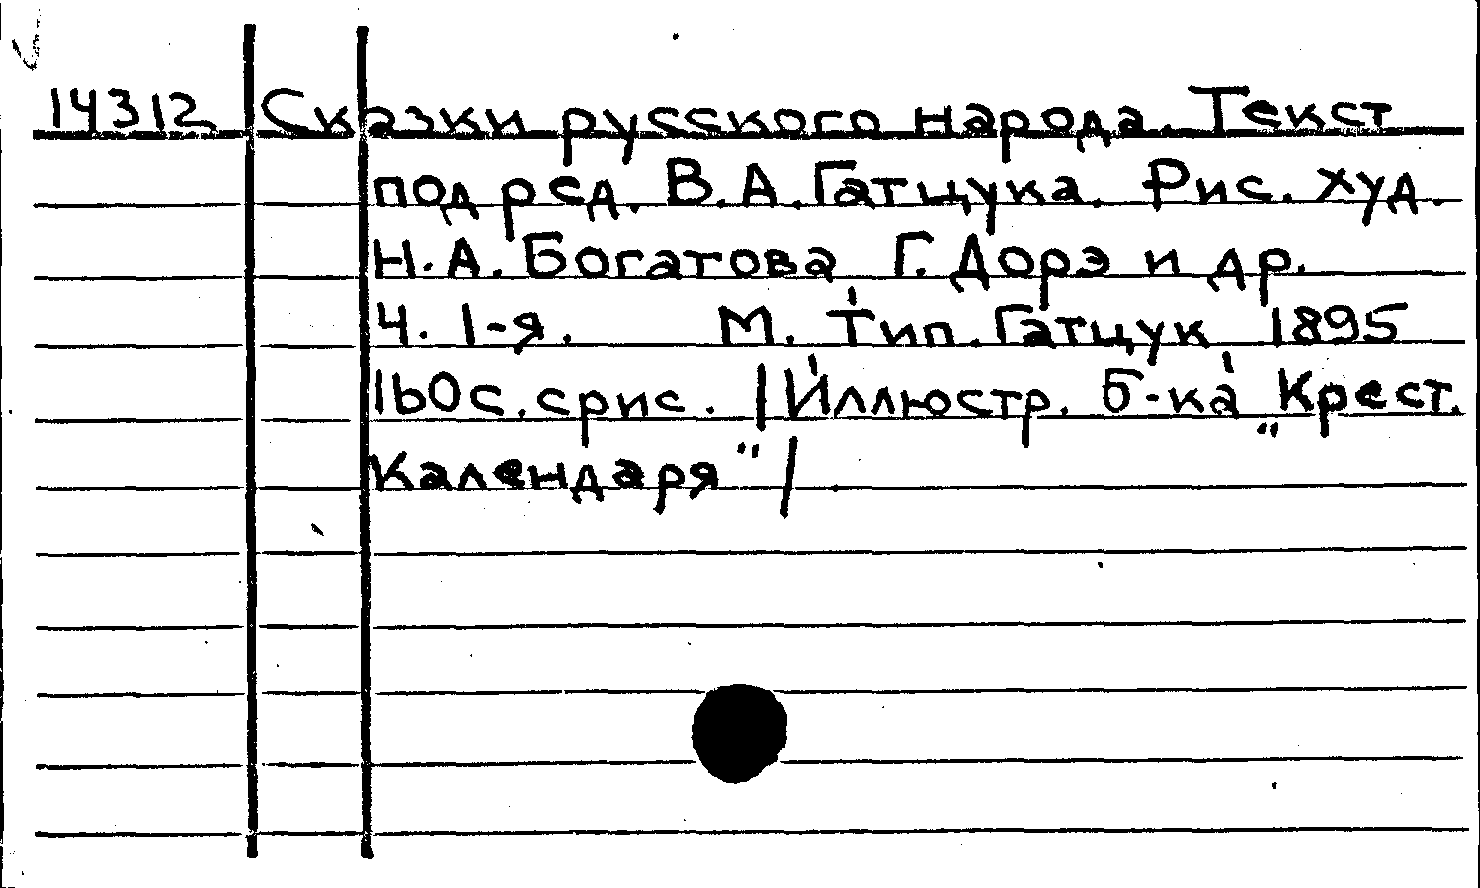 14312 Сказки русского народа. Текст
под ред. В.А. Гатцука. Рис. худ.
Н.А. Богатова, Г. Дорэ и др.
Ч. 1-я. М. Тип. Гатцук, 1895
160с. срис. /Иллюстр. б-ка „Крест.
календаря"/